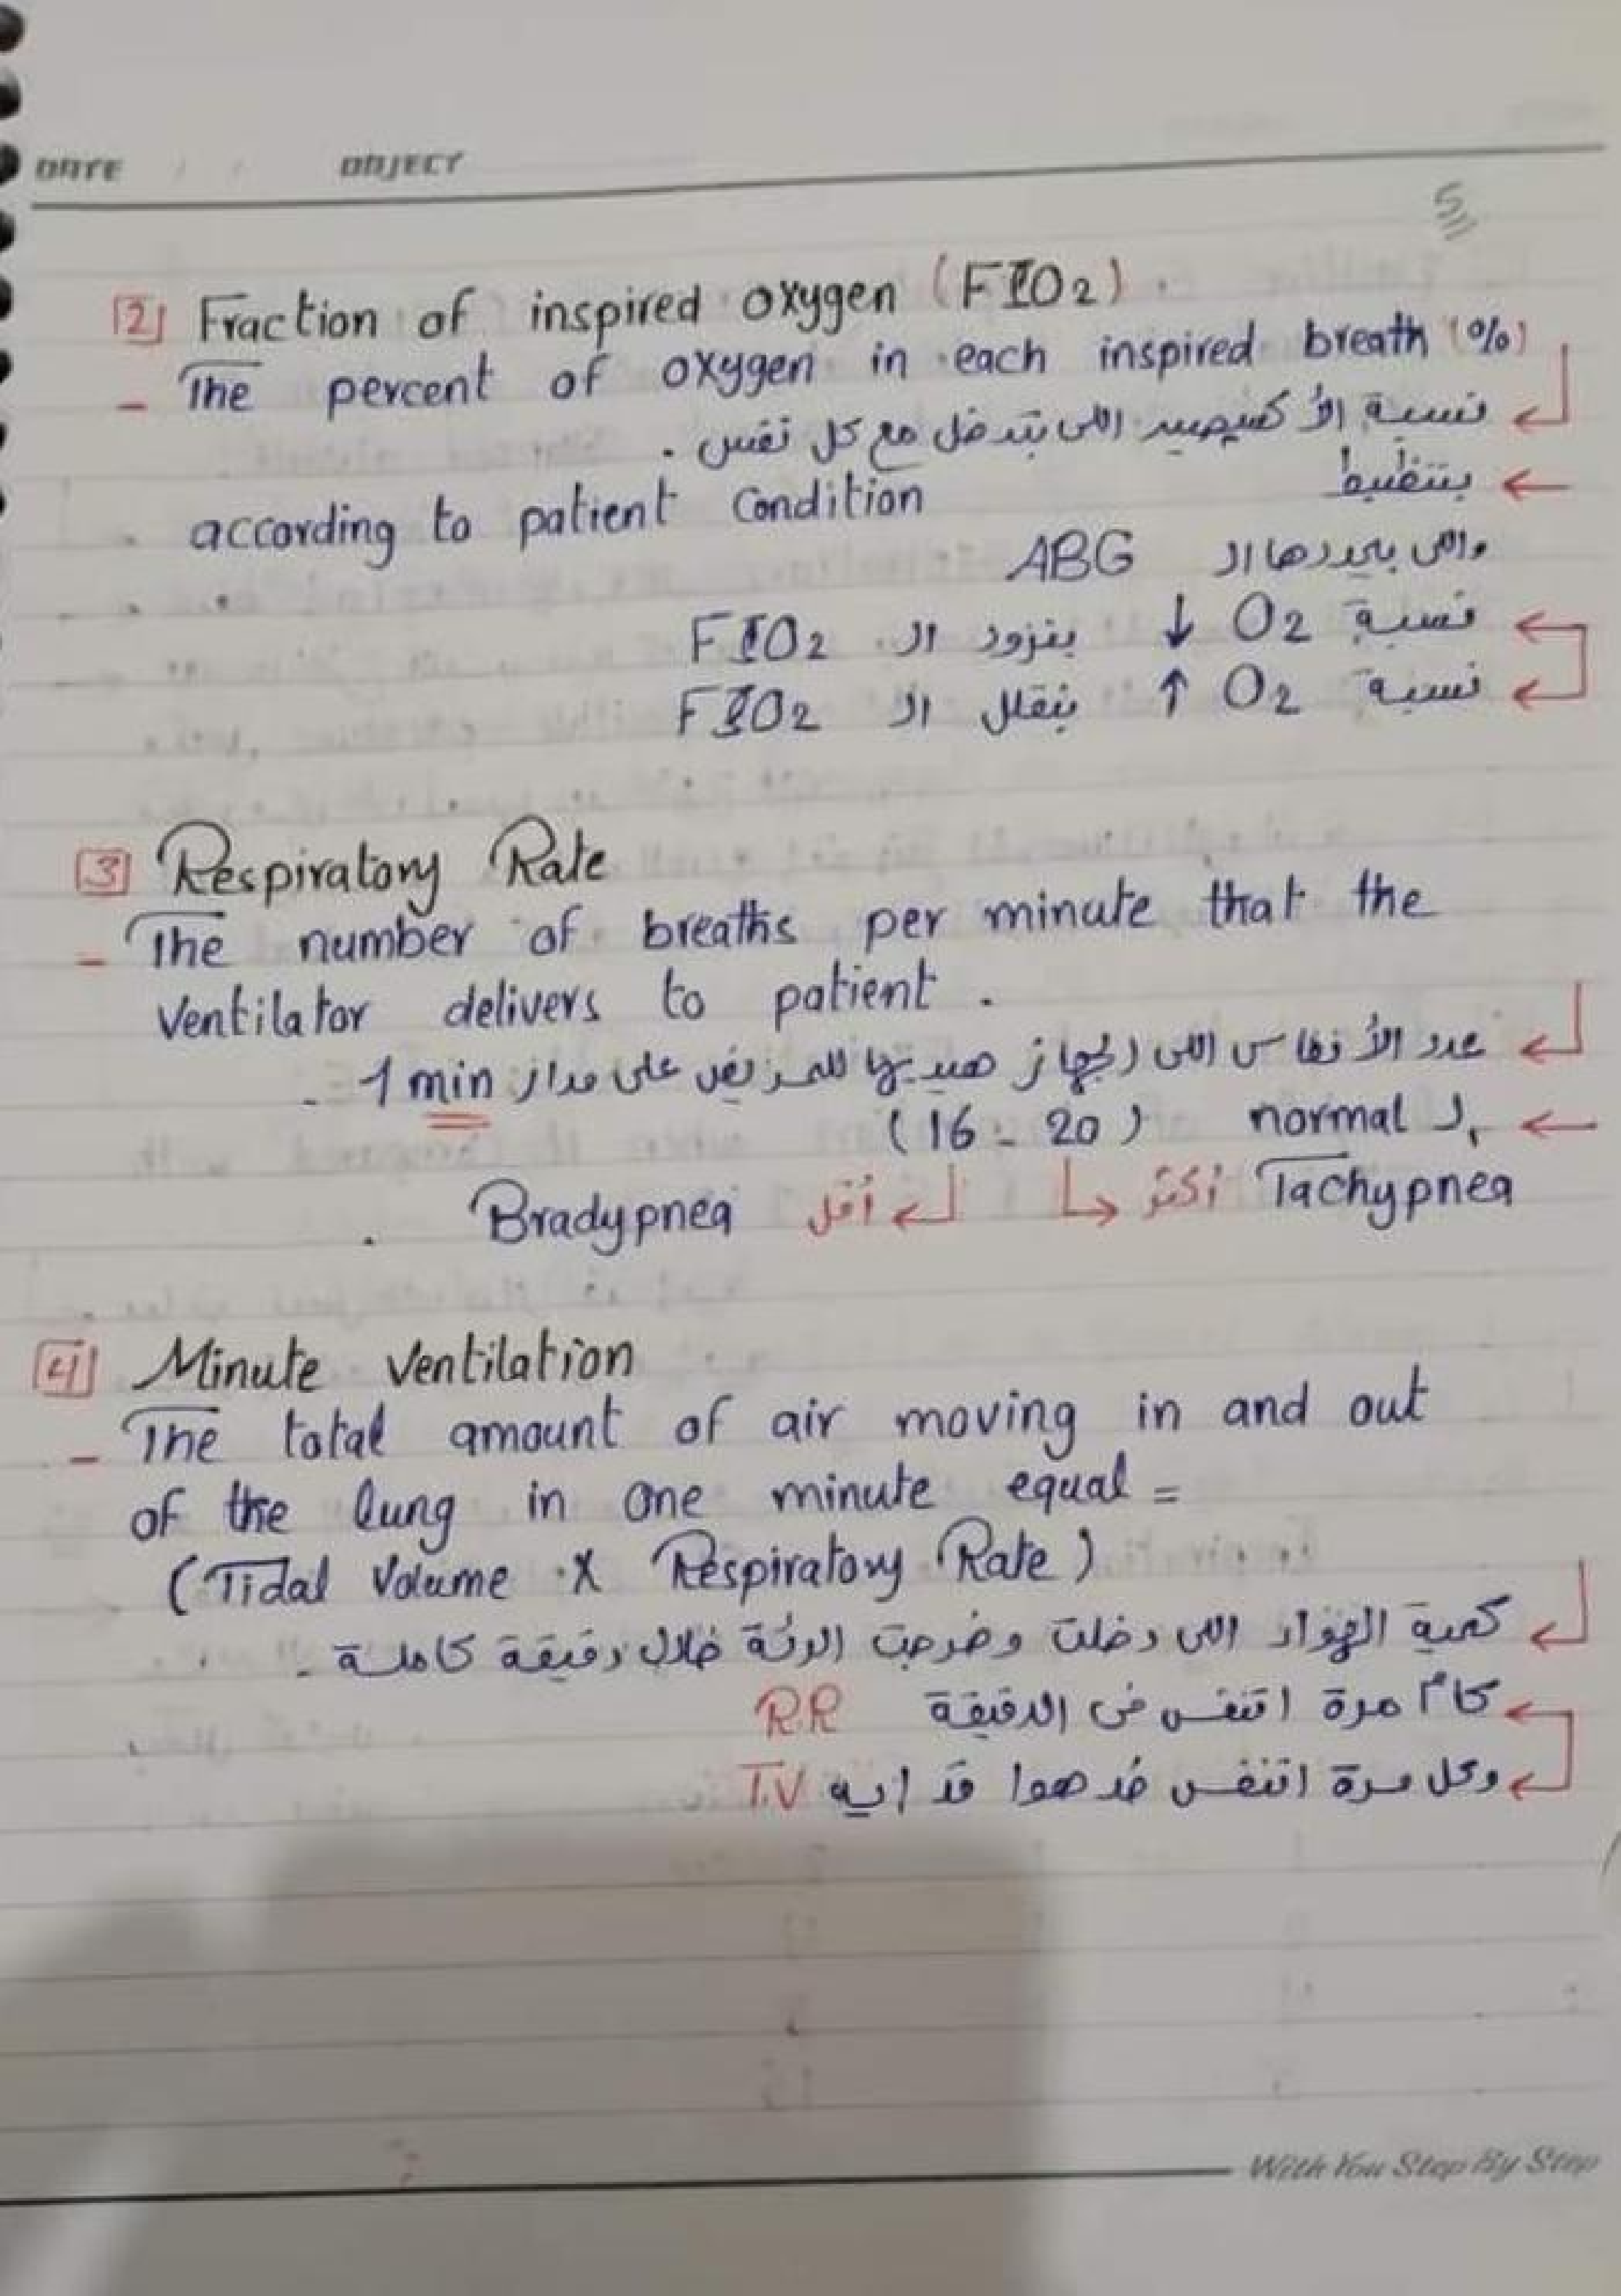 DATE / / OBJECT
5
[2] Fraction of inspired oxygen (FIO2).
- The percent of oxygen in each inspired breath (%)
نسبة الأكسيجين اللى بتدخل مع كل نفس .
← بتتظبط according to patient condition
واللى بيحددها الـ ABG
نسبة O2 ↓ بنزود الـ FIO2
نسبة O2 ↑ بنقلل الـ FIO2
[3] Respiratory Rate
- The number of breaths per minute that the
ventilator delivers to patient .
عدد الأنفاس اللى الجهاز هيديها للمريض على مدار 1 min .
← الـ normal (16 - 20)
Tachypnea أكتر أقل Bradypnea .
[4] Minute ventilation
- The total amount of air moving in and out
of the lung in one minute equal =
(Tidal Volume X Respiratory Rate)
كمية الهواء اللى دخلت وخرجت الرئة خلال دقيقة كاملة .
كام مرة اتنفس فى الدقيقة RR
وكل مرة اتنفس خد هوا قد ايه T.V
With You Step By Step